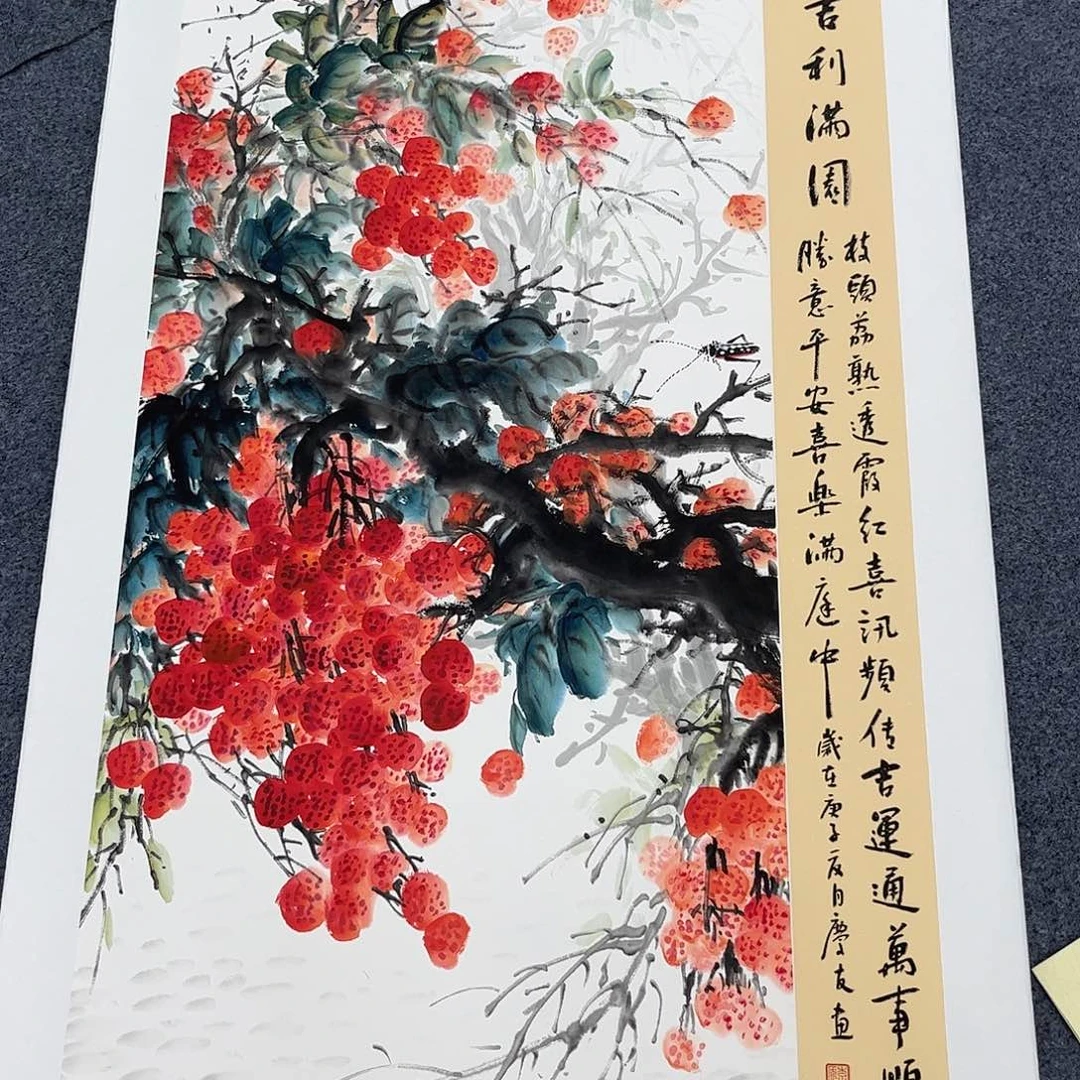 吉利滿園
枝頭荔熟透霞紅喜訊頻传吉運通萬事順
勝意平安喜樂滿庭中
歲在庚子夏月慶友畫